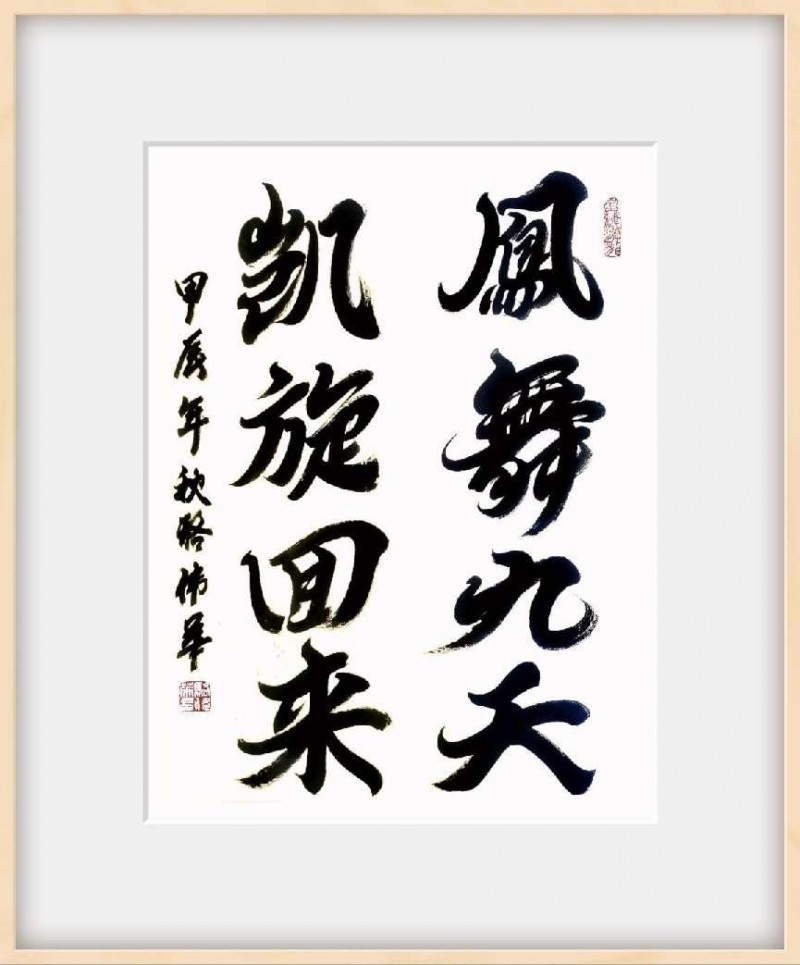 鳳舞九天
凯旋回来
甲辰年秋骆伟华